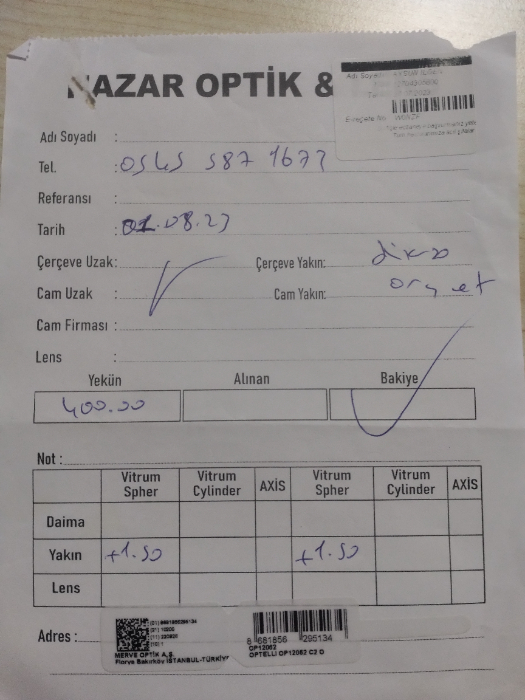 NAZAR OPTİK &
Adı Soyadı :
Tel. : 0545 587 1677
Referansı :
Tarih : 01.08.23
Çerçeve Uzak: Çerçeve Yakın:
Cam Uzak : Cam Yakın:
Cam Firması :
Lens :
Yekün Alınan Bakiye
400.00
Not :
Vitrum Spher Vitrum Cylinder AXİS Vitrum Spher Vitrum Cylinder AXİS
Daima
Yakın +1.50 +1.50
Lens
Adres :
MERVE OPTİK A.Ş.
Florya Bakırköy İSTANBUL-TÜRKİYE
8 681856 295134
OP12062
OPTELLI OP12062 C2 D